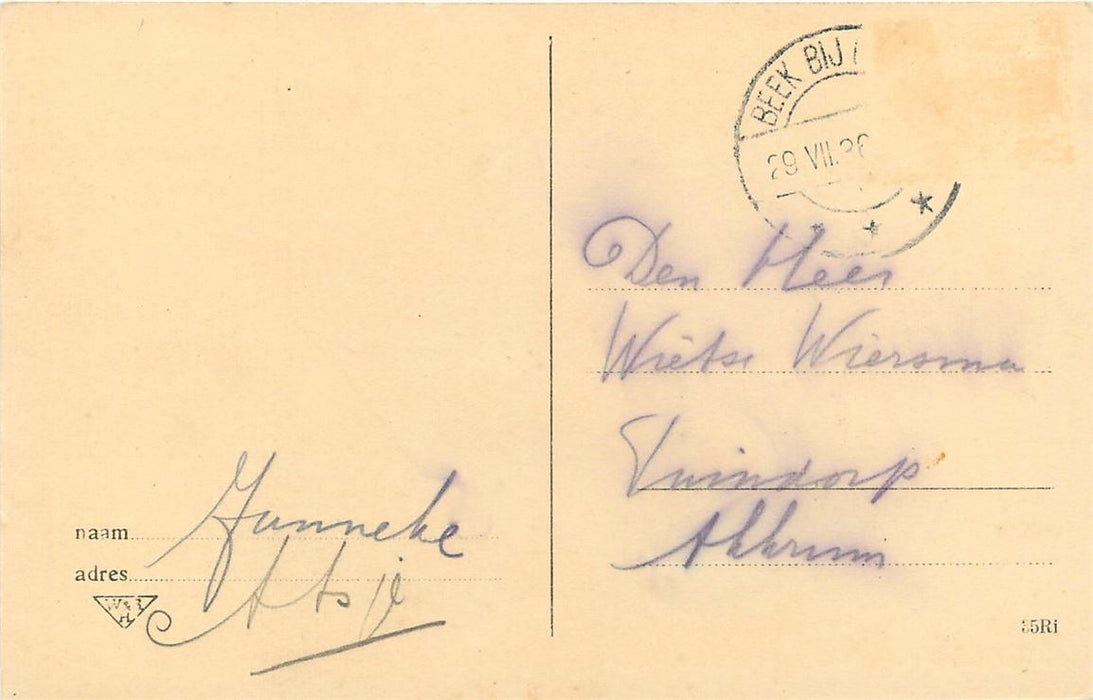 BEEK BIJ
29 VII.36
Den Heer
Wietse Wiersma
Tuindorp
Akkrum
naam Janneke
adres Atsje
W & B
H
35Ri